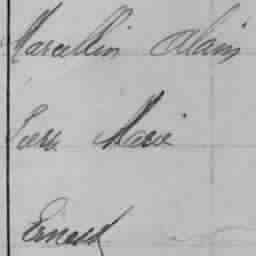 Marcellin Alain
Pierre Marie
Ernest